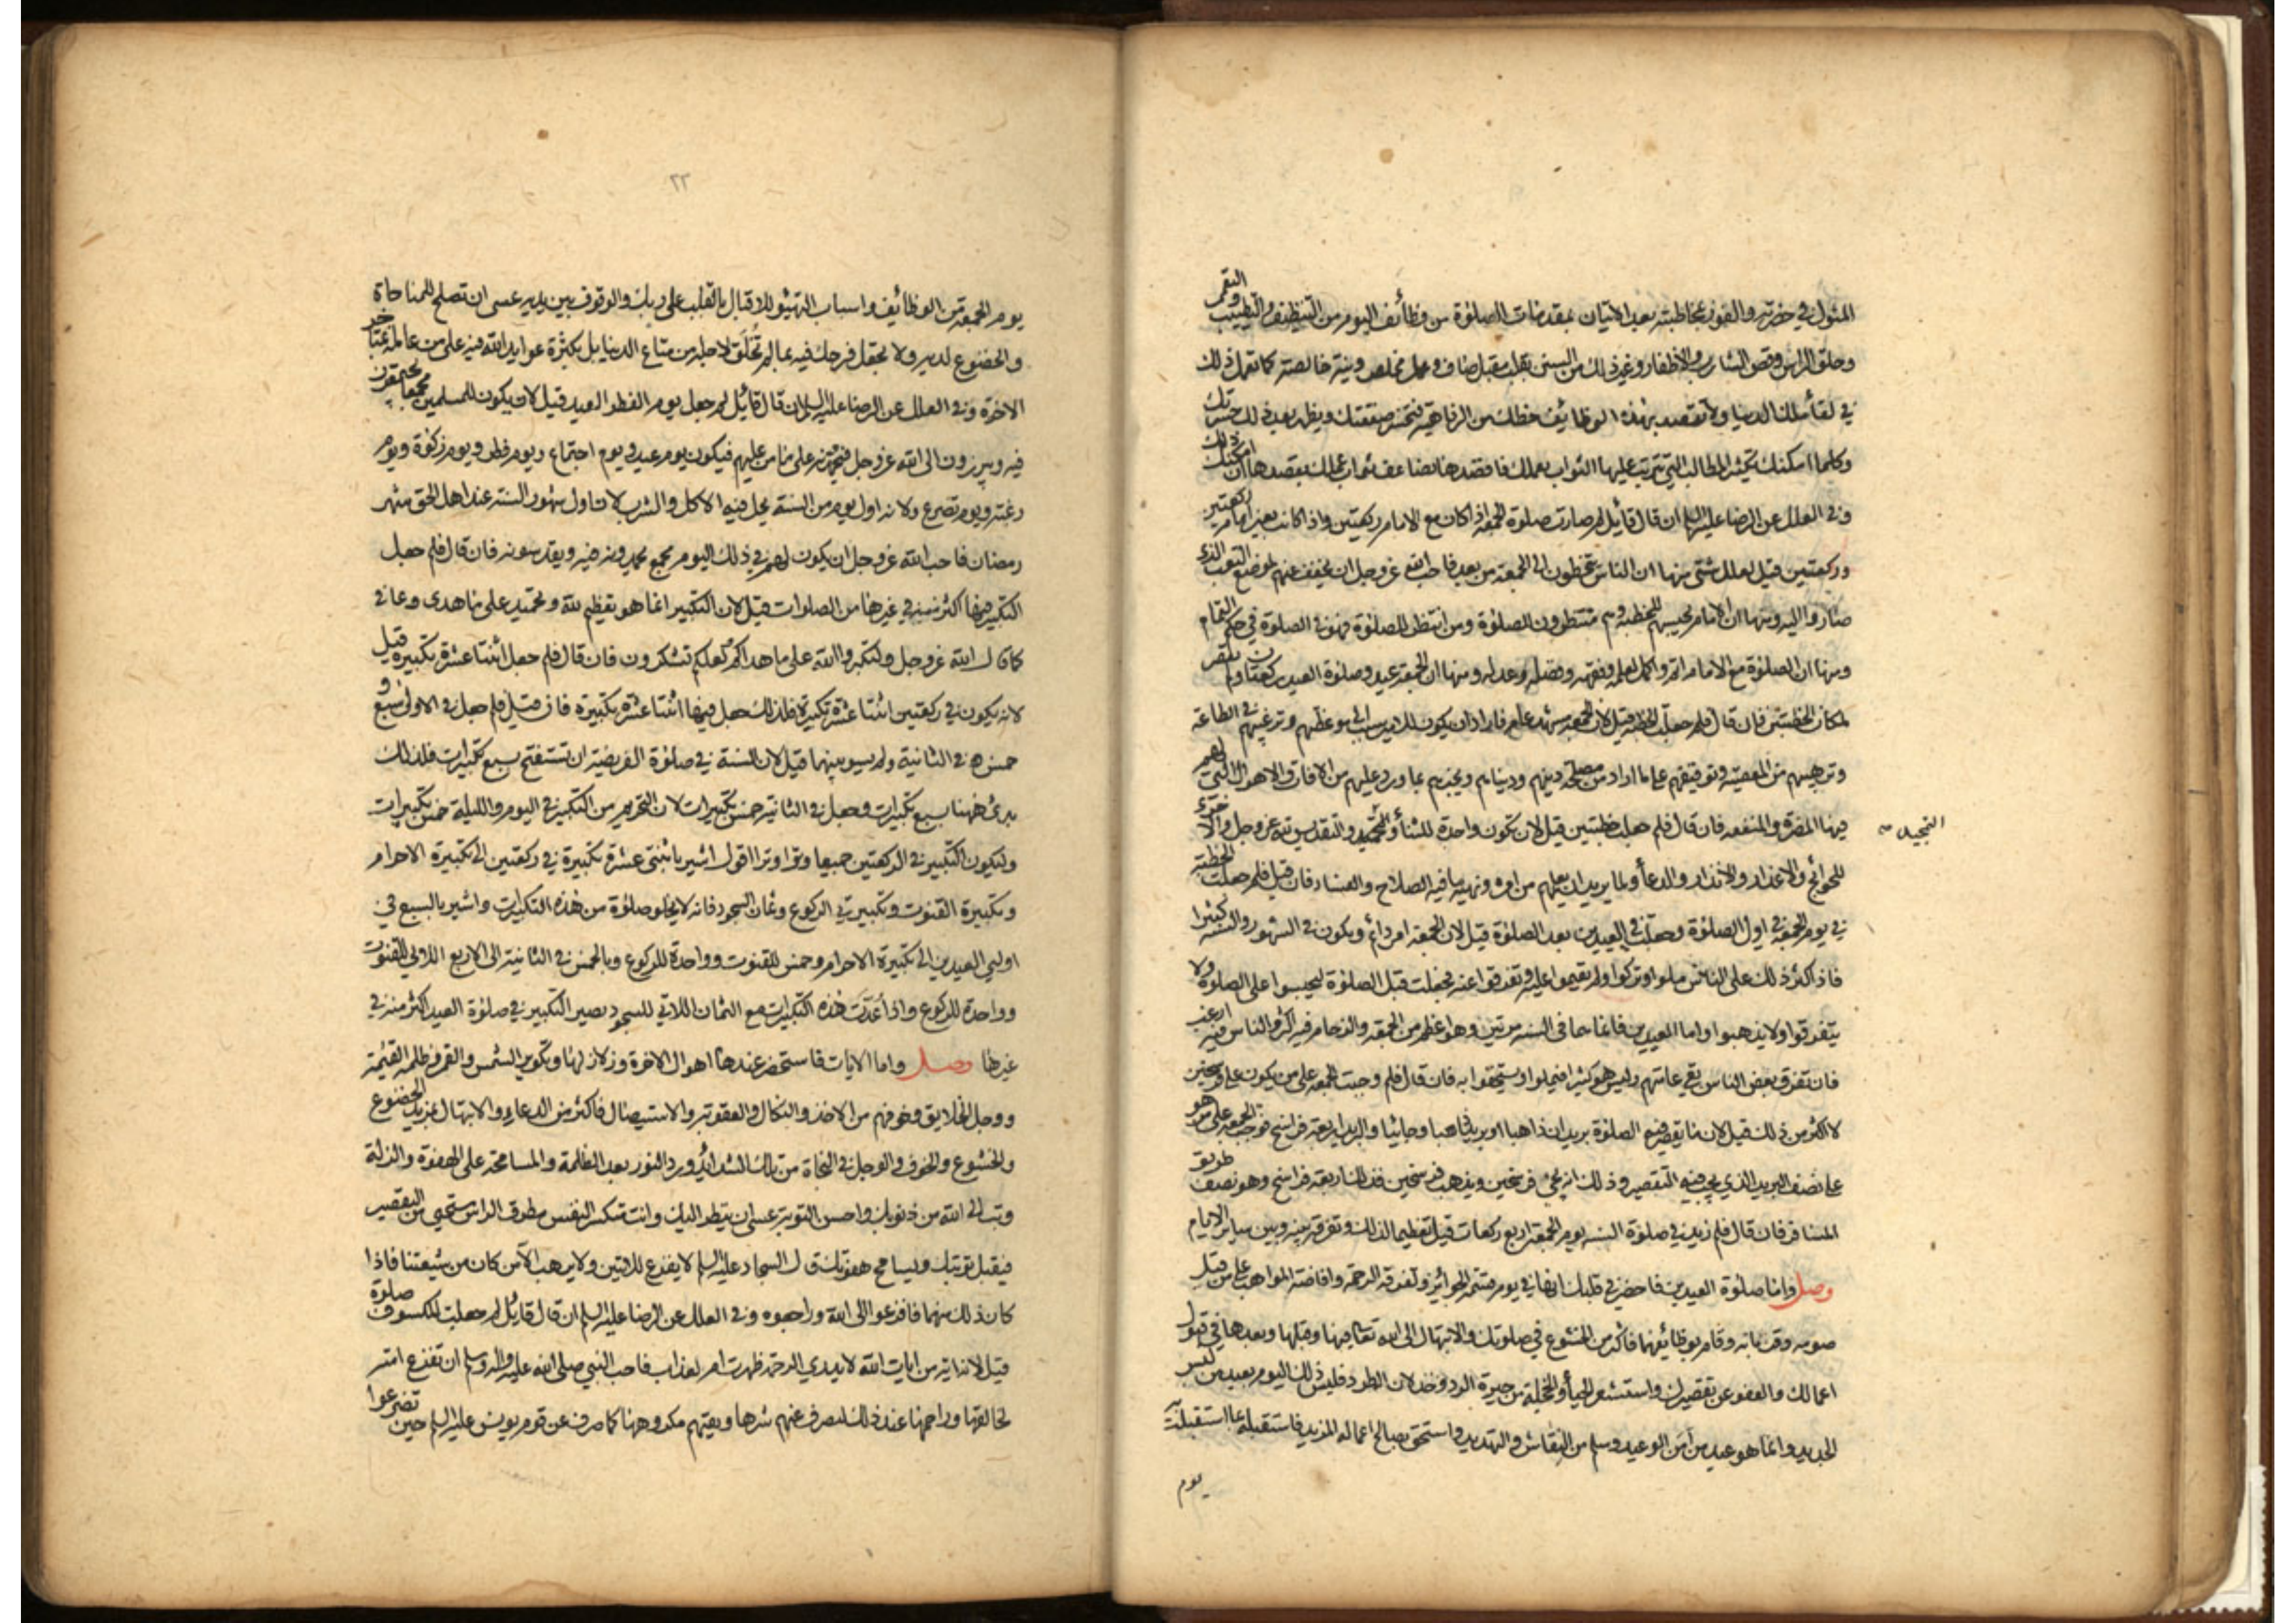 المثول في حضرته والفوز بمخاطبته بعد الاتيان بمقدمات الصلوة من وظائف اليوم من التنظيف والتطييب والتعمم
وحلق الراس وقص الشارب والاظفار وغير ذلك من السنن بقلب مقبل صاف وعمل مخلص ونية خالصة كما تعمل ذلك
في لقاء ملك الدنيا ولا تقصد بهذه الوظائف حظك من الرفاهية فتخسر صفقتك ويظهر بعد ذلك حسرتك
وكلما امكنك تكثير المطالب التي يترتب عليها الثواب بعملك فاقصدها يضاعف ثواب عملك بقصدها ان امكنك ذلك
وفي العلل عن الرضا عليه السلم ان قال قائل لم صارت صلوة الجمعة اذا كان مع الامام ركعتين واذا كانت بغير امام ركعتين
وركعتين قيل لعلل شتى منها ان الناس يتخطون الى الجمعة من بعد فاحب الله عز وجل ان يخفف عنهم لموضع التعب الذي
صاروا اليه ومنها ان الامام يحبسهم للخطبة وهم منتظرون للصلوة ومن انتظر للصلوة فهو في الصلوة في حكم التمام
ومنها ان الصلوة مع الامام اتم واكمل لعلمه وفقهه وفضله وعدله ومنها ان الجمعة عيد وصلوة العيد ركعتان ولم تقصر
لمكان الخطبتين فان قال فلم جعلت الخطبة قيل لان الجمعة مشهد عام فاراد ان يكون للامير سبب الى موعظتهم وترغيبهم في الطاعة
وترهيبهم من المعصية وتوقيفهم على ما اراد من مصلحة دينهم ودنياهم ويخبرهم بما ورد عليهم من الافاق والاهوال التي لهم
فيها المضرة والمنفعة فان قال فلم جعلت خطبتين قيل لان تكون واحدة للثناء والتحميد والتقديس لله عز وجل والاخرى
التمجيد
للحوائج والاعذار والانذار والدعاء ولما يريد ان يعلمهم من امره ونهيه ما فيه الصلاح والفساد فان قيل فلم جعلت الخطبة
في يوم الجمعة في اول الصلوة وجعلت في العيدين بعد الصلوة قيل لان الجمعة امر دائم ويكون في الشهور والسنة كثيرا
فاذا كثر ذلك على الناس ملوا وتركوا ولم يقيموا عليه وتفرقوا عنه فجعلت قبل الصلوة ليحبسوا على الصلوة ولا
يتفرقوا ولا يذهبوا واما العيدين فانما هما في السنة مرتين وهو اعظم من الجمعة والزحام فيه اكثر والناس فيه ارغب
فان تفرق بعض الناس بقي عامتهم وليس هو كثيرا فيملوا ويستخفوا به فان قال فلم وجبت الجمعة على من يكون على فرسخين
لا اكثر من ذلك قيل لان ما يقصر فيه الصلوة بريدان ذاهبا او بريد ذاهبا وجائيا والبريد اربعة فراسخ فوجبت الجمعة على من هو
على نصف البريد الذي يجب فيه التقصير وذلك انه يجئ فرسخين ويذهب فرسخين فذلك اربعة فراسخ وهو نصف طريق
المسافر فان قال فلم زيد في صلوة السنة يوم الجمعة اربع ركعات قيل تعظيما لذلك وتفرقة بينه وبين سائر الايام
وصل واما صلوة العيدين فاحضر في قلبك انها في يوم قسمة الجوائز وتفرقة الرحمة وافاضة المواهب على من قبل
صومه وقربانه وقام بوظائفهما فاكثر من الخشوع في صلوتك والابتهال الى الله تعالى فيها وقبلها وبعدها في قبول
اعمالك والعفو عن تقصيرك واستشعر الحياء والخجلة من حيرة الرد وخذلان الطرد فليس ذلك اليوم بعيد من لبس
الجديد وانما هو عيد من امن الوعيد وسلم من النقاش والتهديد واستحق بصالح اعماله المزيد فاستقبله بما استقبلت به
يوم
٢٢
يوم الجمعة من الوظائف واسباب التهيؤ للاقبال بالقلب على ربك والوقوف بين يديه عسى ان تصلح للمناجاة
والخضوع لديه ولا تجعل فرحك فيه بما لم تخلق لاجله من متاع الدنيا بل بكثرة عوايد الله فيه على من عامله بمتاجر
الاخرة وفي العلل عن الرضا عليه السلم ان قال قائل لم جعل يوم الفطر العيد قيل لان يكون للمسلمين مجمعا يجتمعون
فيه ويبرزون الى الله عز وجل فيحمدونه على ما من عليهم فيكون يوم عيد ويوم اجتماع ويوم فطر ويوم زكوة ويوم
رغبة ويوم تضرع ولانه اول يوم من السنة يحل فيه الاكل والشرب لان اول شهور السنة عند اهل الحق شهر
رمضان فاحب الله عز وجل ان يكون لهم في ذلك اليوم مجمع يحمدونه فيه ويقدسونه فان قال فلم جعل
التكبير فيها اكثر منه في غيرها من الصلوات قيل لان التكبير انما هو تعظيم لله وتحميد على ما هدى وعافى
كما قال الله عز وجل ولتكبروا الله على ما هداكم لعلكم تشكرون فان قال فلم جعل اثنتا عشرة تكبيرة قيل
لانه يكون في ركعتين اثنتا عشرة تكبيرة فلذلك جعل فيها اثنتا عشرة تكبيرة فان قيل فلم جعل في الاولى سبع و
خمس في الثانية ولم يسو بينهما قيل لان السنة في صلوة الفريضة ان تستفتح بسبع تكبيرات فلذلك
بدئ ههنا بسبع تكبيرات وجعل في الثانية خمس تكبيرات لان التحريم من التكبير في اليوم والليلة خمس تكبيرات
وليكون التكبير في الركعتين جميعا وترا وترا اقول اشير باثنتي عشرة تكبيرة في ركعتين الى تكبيرة الاحرام
وتكبيرة القنوت وتكبيرتي الركوع وثمان السجود فانه لا يخلو صلوة من هذه التكبيرات واشير بالسبع في
اولي العيدين الى تكبيرة الاحرام وخمس للقنوت وواحدة للركوع وبالخمس في الثانية الى الاربع اللاتي للقنوت
وواحدة للركوع واذا عدت هذه التكبيرات مع الثمان اللاتي للسجود يصير التكبير في صلوة العيد اكثر منه في
غيرها وصل واما الايات فاستحضر عندها اهوال الاخرة وزلازلها وتكوير الشمس والقمر وظلمة القيمة
ووجل الخلايق وخوفهم من الاخذ والنكال والعقوبة والاستيصال فاكثر من الدعاء والابتهال بمزيد الخضوع
والخشوع والخوف والوجل في النجاة من تلك الشدائد ورد النور بعد الظلمة والمسامحة على الهفوة والزلة
وتب الى الله من ذنوبك واحسن التوبة عسى ان ينظر اليك وانت منكسر النفس مطرق الراس مستحيي من التقصير
فيقبل توبتك ويسامح هفوتك قال السجاد عليه السلم لا يفزع للايتين ولا يرهب الا من كان من شيعتنا فاذا
كان ذلك منهما فافزعوا الى الله وراجعوه وفي العلل عن الرضا عليه السلم ان قال قائل لم جعلت للكسوف صلوة
قيل لانه اية من ايات الله لا يدرى الرحمة ظهرت ام لعذاب فاحب النبي صلى الله عليه واله وسلم ان تفزع امته
لخالقها وراحمها عند ذلك ليصرف عنهم شرها ويقيهم مكروهها كما صرف عن قوم يونس عليه السلم حين تضرعوا